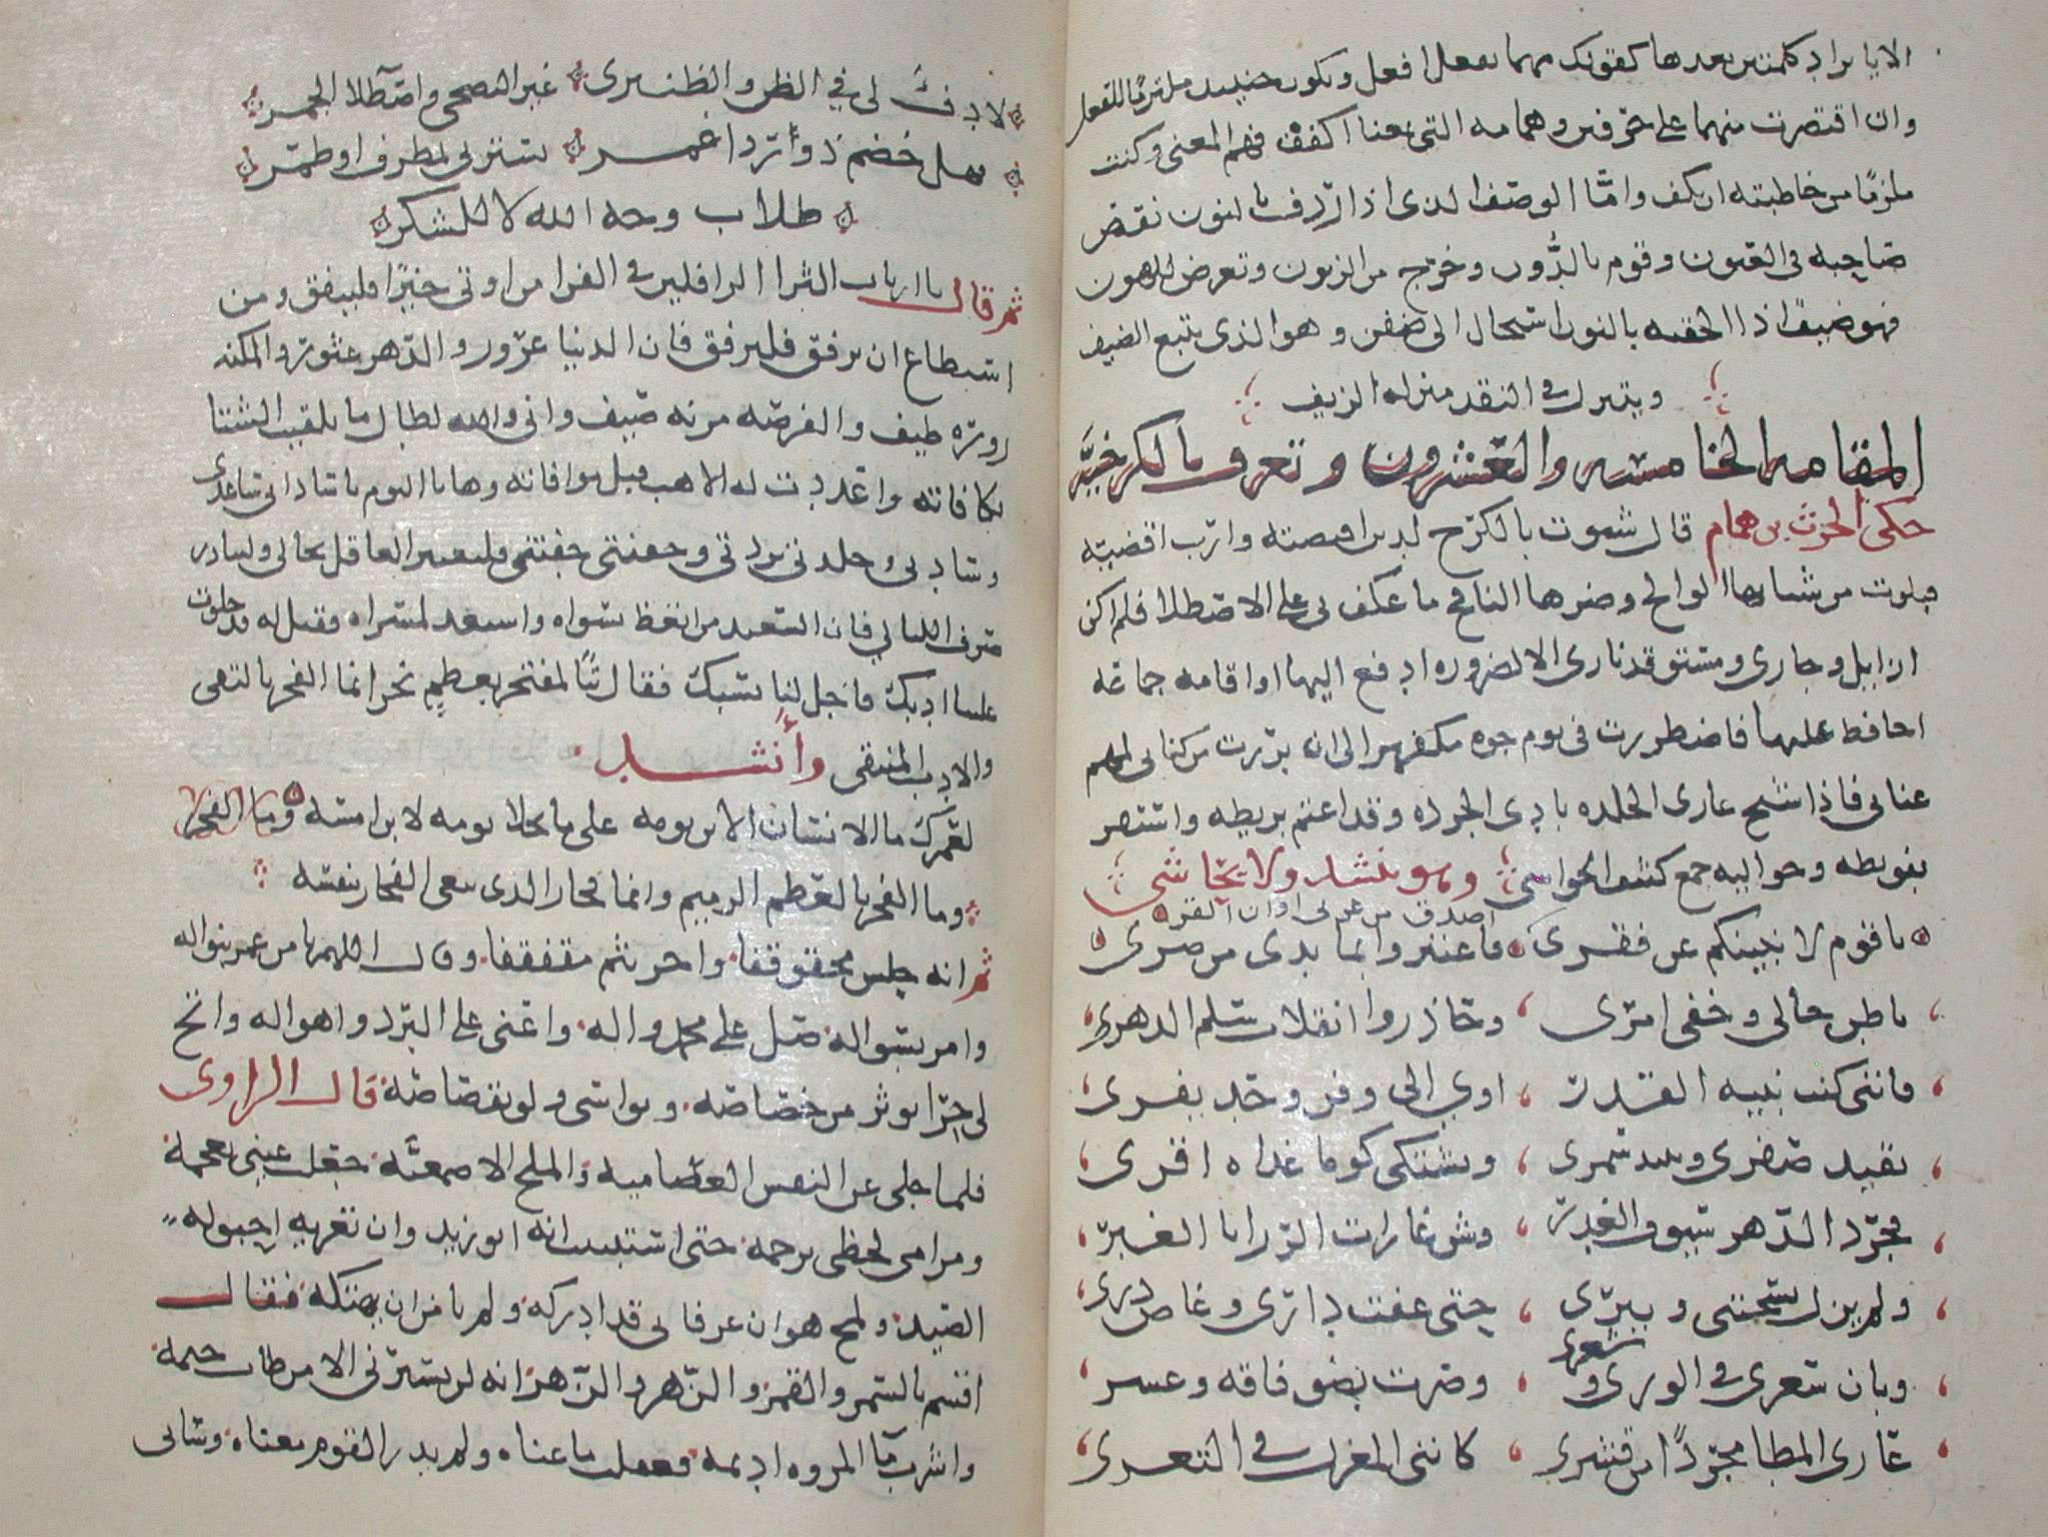 الا بايراد كلمتين بعدها كقولك مهما تفعل افعل وتكون حينئذ ملتزما للفعل
وان اقتصرت منهما على حرفين وهما مه التي بمعنا اكفف فهم المعنى وكنت
ملزمًا من خاطبته ان يكف وامّا الوصف الذى اذا اردف بالنون نقض
صاحبه فى العيون وقوم بالدُّون وخرج من الزبون وتعرض للهون
فهو ضيف اذا الحقته بالنون استحال الى ضيفن وهو الذى يتبع الضيف
ويتنزل فى النقد منزله الزيف
المقامه الخامسه والعشرون وتعرف بالكرخيَّه
حكى الحرث بن همام قال شتوت بالكرج لدين اقتضيته وارب اقضيته
فبلوت من شتايها الوالح وصرها النافح ما عكف بى على الاصطلا فلم اكن
ازايل وجارى ومستوقد نارى الا لضروره ادفع اليها او اقامه جماعه
احافظ عليها فاضطررت فى يوم جوه مكفهر الى ان برزت من كنانى لمهم
عنانى فاذا شيخ عارى الجلده بادى الجرده وقد اعتم بريطه واستثفر
بفويطه وحواليه جمع كثيف الحواشى وهو ينشد ولا يحاشى
ياقوم لا ينبيكم عن فقرى اصدق من عريى اوان القر
فاعتبروا بما بدى من ضرى
باطن حالى وخفى امرى وحاذروا انقلاب سلم الدهر
فانني كنت نبيه القدر اوي الى وفر وحد يفرى
تفيد صفرى وتبيد سمرى وتشتكى كوما غداه اقرى
فجرّد الدّهر سيوف الغدر وشن غارات الرّزايا الغبر
ولم يزل يسحتنى ويبرى حتى عفت دارى وغاض درى
وبان سعرى فى الورى وشعرى وصرت نضو فاقه وعسر
عارى المطا مجرّدًا من قشرى كاننى المغزل فى التعرى
لا دفءَ لى في الصن والصنبرى غير التضحى واصطلا الجمر
فهل خضم ذو رداء غمر يسترنى بمطرف او طمر
طلاب وجه الله لا للشكر
ثم قال يا ارباب الثرا الرافلين فى الفرا من اوتى خيرًا فلينفق ومن
استطاع ان يرفق فليرفق فان الدنيا غرور والدّهر عثور والمكنه
زوره طيف والفرصه مزنه صيف وانى والله لطال ما تلقيت الشتا
بكافاته واعددت له الاهب قبل موافاته وها انا اليوم ياسادانى ساعدى
وسادىْ وجلدتى بردتى وحفنتى جفنتى فليعتبر العاقل بحالى وليبادر
صرف الليالي فان السعيد من اتعظ بسواه واستعد لمسراه فقيل له قد جلوت
علينا ادبك فاجل لنا نسبك فقال تبًا لمفتخر بعظم نخر انما الفخر بالتقى
والادب المنتقى وأنشد
لعمرك ما الانسان الا بن يومه على ما تجلا يومه لا بن امسه وما الفخر
وما الفخر بالعظم الرميم وانما فخار الذى يبغى الفخار بنفسه
ثم انه جلس محقوقفا واجرنثم مقفقفا وقال اللهم يا من غمر بنواله
وامر بسواله صل على محمد واله واعنى على البرد واهواله واتح
لى حرّا يوثر من خصاصه ويواسى ولو بقصاصه قال الراوى
فلما جلى عن النفس العصاميه والملح الاصمعيّه جعلت عينى تعجمه
ومرامى لحظى ترجمه حتى استبينت انه ابو زيد وان تعريه احبوله
الصيد ولمح هو ان عرفانى قد ادركه ولم يامن ان يهتكه فقال
اقسم بالسمر والقمر والزّهر والزّهر انه لن يسترنى الا من طاب خيمه
واشرب ما المروه اديمه فعقلت ما عناه ولم يدر القوم معناه وسانى